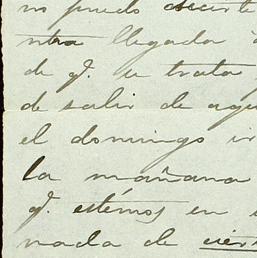 no puedo decirte
ntra llegada á
de q. se trata
de salir de aqu
el domingo ir
la mañana
q. estémos en
nada de cier